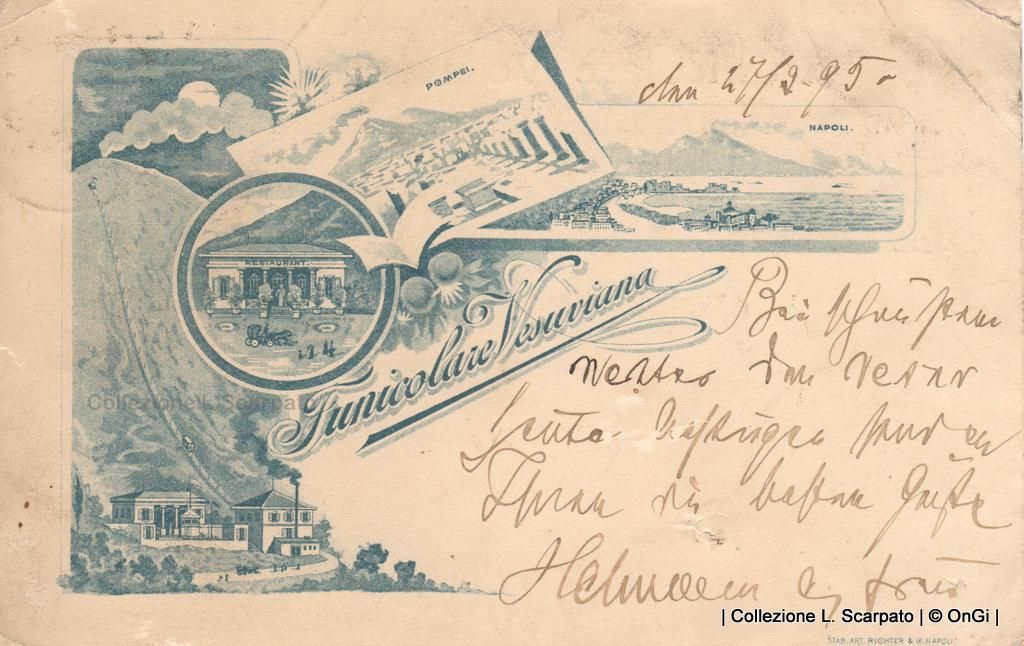 POMPEI.
den 27/2. 95.
NAPOLI.
RESTAURANT.
Funicolare Vesuviana
Bei schönstem
Wetter den Vesuv
heute bestiegen senden
Ihnen die besten Grüße
Collezione L. Scarpato
| Collezione L. Scarpato | © OnGi |
STAB. ART. RICHTER & C. NAPOLI.